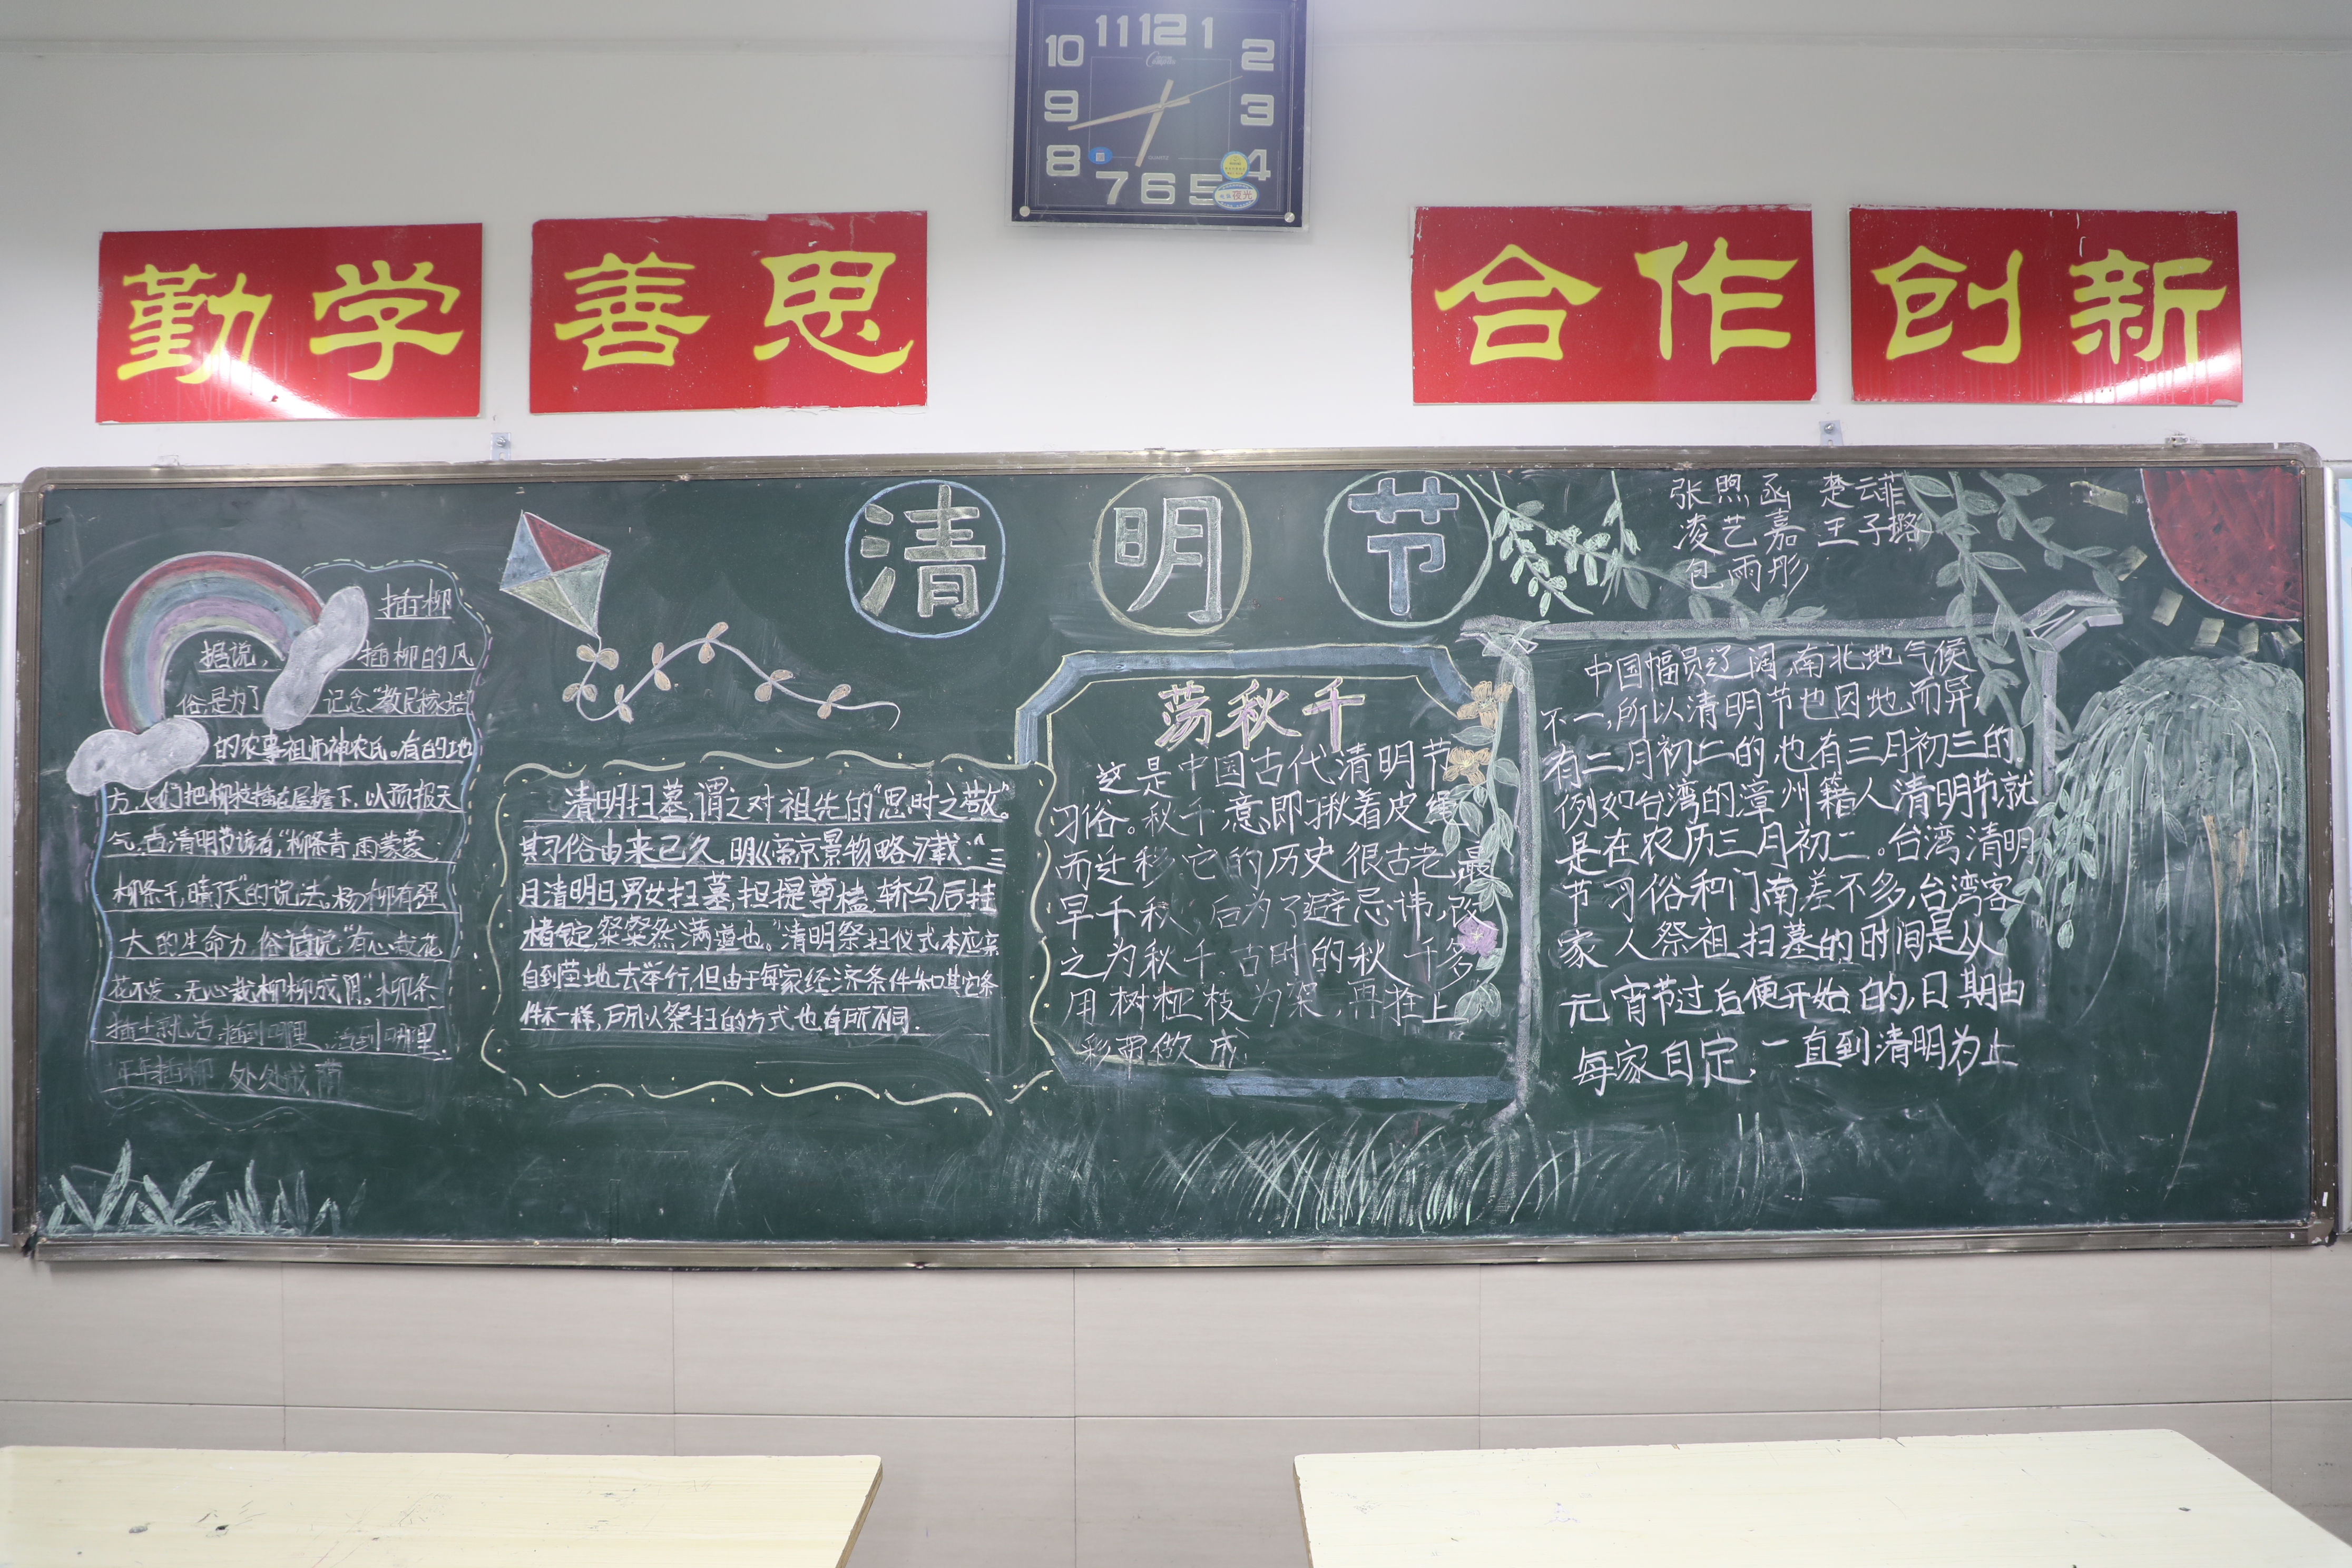 11 12 1
10 2
9 3
8 4
7 6 5
QUARTZ
夜光
勤学 善思 合作 创新
清明节
张煦函 楚云菲
凌艺嘉 王子璐
包雨彤
插柳
据说,插柳的风
俗,是为了记念“教民稼穑”
的农事祖师神农氏。有的地
方,人们把柳枝插在屋檐下,以预报天
气,古清明节谚有“柳条青,雨蒙蒙,
柳条干,晴了天”的说法。杨柳有强
大的生命力,俗话说“有心栽花
花不发,无心栽柳柳成阴。”柳条
插土就活,插到哪里,活到哪里,
年年插柳,处处成荫
清明扫墓,谓之对祖先的“思时之敬”。
其习俗由来已久。明《帝京景物略》载:“三
月清明日,男女扫墓,担提尊榼,轿马后挂
楮锭,粲粲然满道也。”清明祭扫仪式本应亲
自到茔地去举行,但由于每家经济条件和其它条
件不一样,所以祭扫的方式也有所不同.
荡秋千
这是中国古代清明节
习俗。秋千,意即揪着皮绳
而迁移,它的历史很古老,最
早千秋,后为了避忌讳,改
之为秋千。古时的秋千多
用树桠枝为架,再拴上
彩带做成
中国幅员辽阔,南北地气候
不一,所以清明节也因地而异,
有三月初二的,也有三月初三的.
例如台湾的漳州籍人清明节就
是在农历三月初二。台湾清明
节习俗和门南差不多,台湾客
家人祭祖扫墓的时间是从
元宵节过后便开始的,日期由
每家自定,一直到清明为止